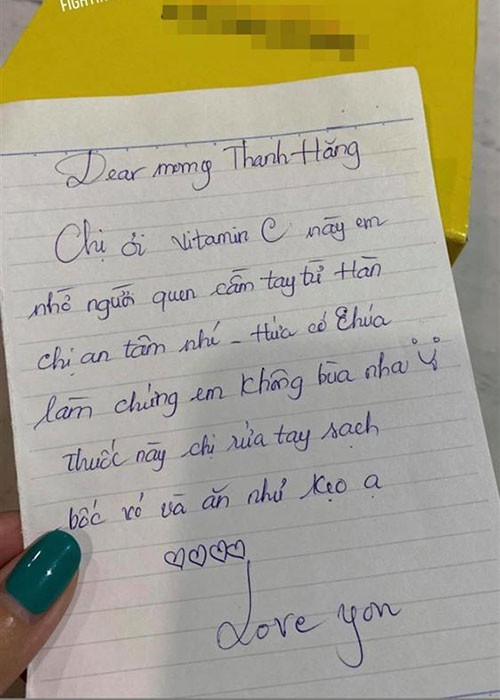 FIGHTIN
Dear momy Thanh Hằng
Chị ơi Vitamin C này em
nhờ người quen cầm tay từ Hàn
chị an tâm nhé - Hứa có Chúa
làm chứng em không bùa nha
Thuốc này chị rửa tay sạch
bốc vỏ và ăn như kẹo ạ
Love you